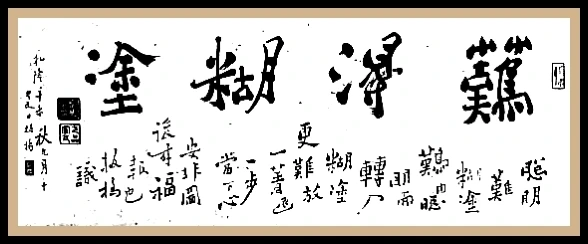 難得糊塗
聰明
難
糊塗
難由聰
明而
轉入
糊塗
更難放
一著退
一步
當下心
安非圖
後來福
報也
板橋
識
乾隆辛未秋九月十